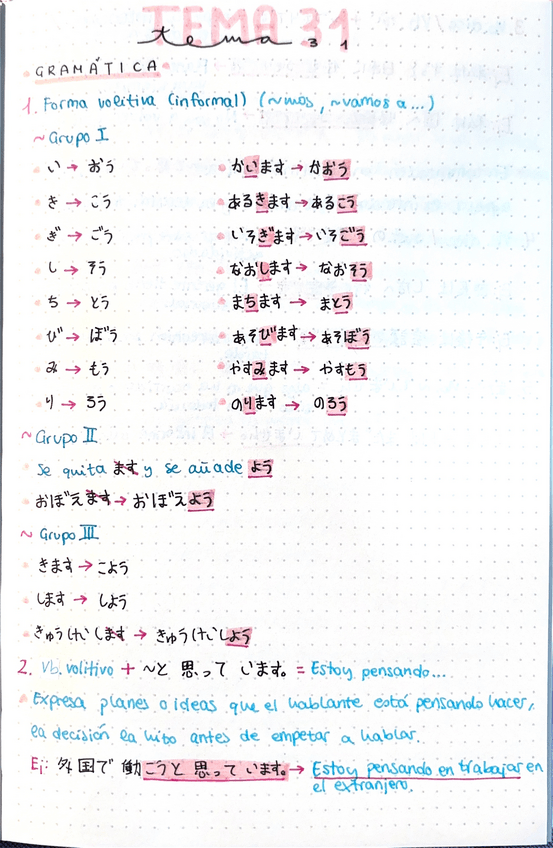 TEMA 31
tema 31
GRAMÁTICA
1. Forma volitiva (informal) (~mos, ~vamos a...)
~ Grupo I
い → おう かいます → かおう
き → こう あるきます → あるこう
ぎ → ごう いそぎます → いそごう
し → そう なおします → なおそう
ち → とう まちます → まとう
び → ぼう あそびます → あそぼう
み → もう やすみます → やすもう
り → ろう のります → のろう
~ Grupo II
Se quita ます y se añade よう
おぼえます → おぼえよう
~ Grupo III
きます → こよう
します → しよう
きゅうけいします → きゅうけいしよう
2. Vb. volitivo + ~と 思って います。 = Estoy pensando...
Expresa planes o ideas que el hablante está pensando hacer,
la decisión la hizo antes de empezar a hablar.
Ej: 外国で 働こうと 思って います。 → Estoy pensando en trabajar en
el extranjero.